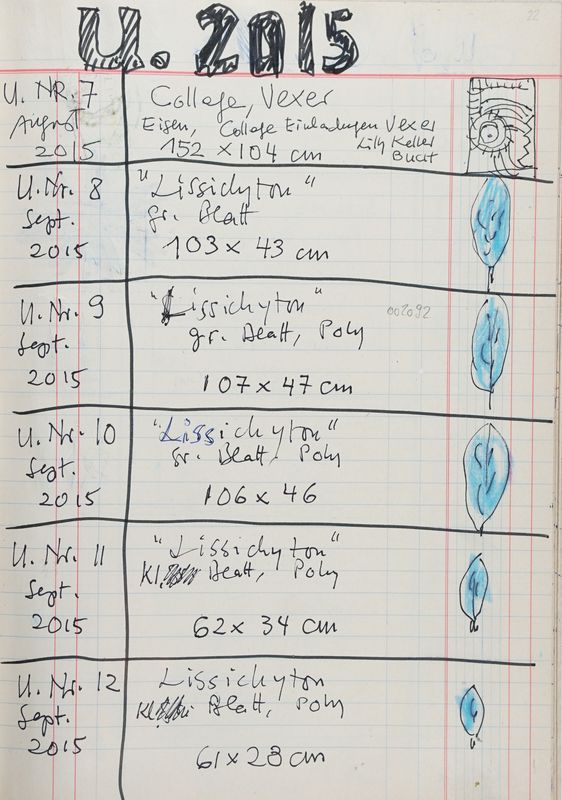 22
U. 2015
U. NR. 7
August
2015
Collage, Vexer
Eisen, Collage Einladungen Vexer
Lilly Keller
Bucht
152 x 104 cm
U. Nr. 8
Sept.
2015
"Lissichyton"
gr. Blatt
103 x 43 cm
U. Nr. 9
Sept.
2015
"Lissichyton"
002092
gr. Blatt, Poly
107 x 47 cm
U. Nr. 10
Sept.
2015
"Lissichyton"
gr. Blatt, Poly
106 x 46
U. Nr. 11
Sept.
2015
"Lissichyton"
Kl. Blatt, Poly
62 x 34 cm
U. Nr. 12
Sept.
2015
Lissichyton
Kl. Blatt, Poly
61 x 28 cm